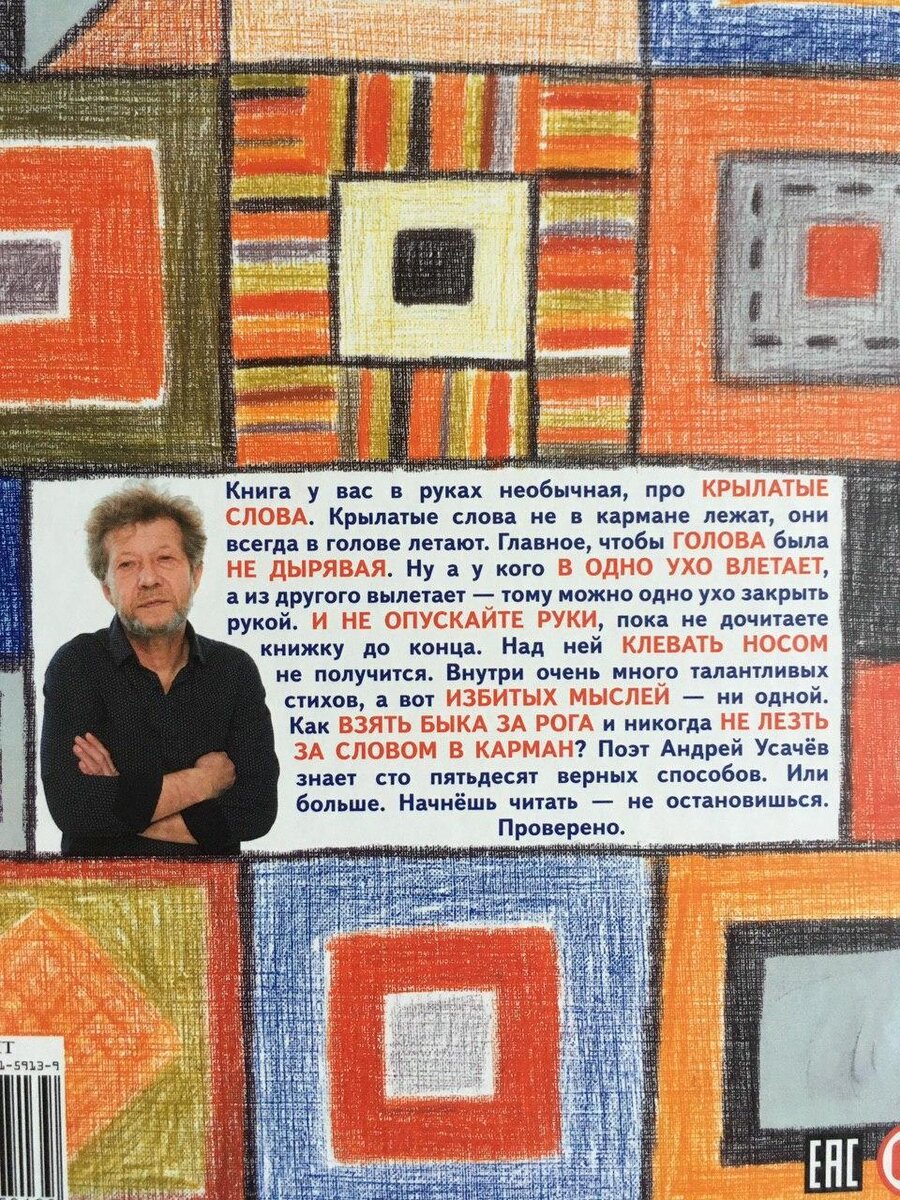 Книга у вас в руках необычная, про КРЫЛАТЫЕ
СЛОВА. Крылатые слова не в кармане лежат, они
всегда в голове летают. Главное, чтобы ГОЛОВА была
НЕ ДЫРЯВАЯ. Ну а у кого В ОДНО УХО ВЛЕТАЕТ,
а из другого вылетает — тому можно одно ухо закрыть
рукой. И НЕ ОПУСКАЙТЕ РУКИ, пока не дочитаете
книжку до конца. Над ней КЛЕВАТЬ НОСОМ
не получится. Внутри очень много талантливых
стихов, а вот ИЗБИТЫХ МЫСЛЕЙ — ни одной.
Как ВЗЯТЬ БЫКА ЗА РОГА и никогда НЕ ЛЕЗТЬ
ЗА СЛОВОМ В КАРМАН? Поэт Андрей Усачёв
знает сто пятьдесят верных способов. Или
больше. Начнёшь читать — не остановишься.
Проверено.
1-5913-9
ЕАС